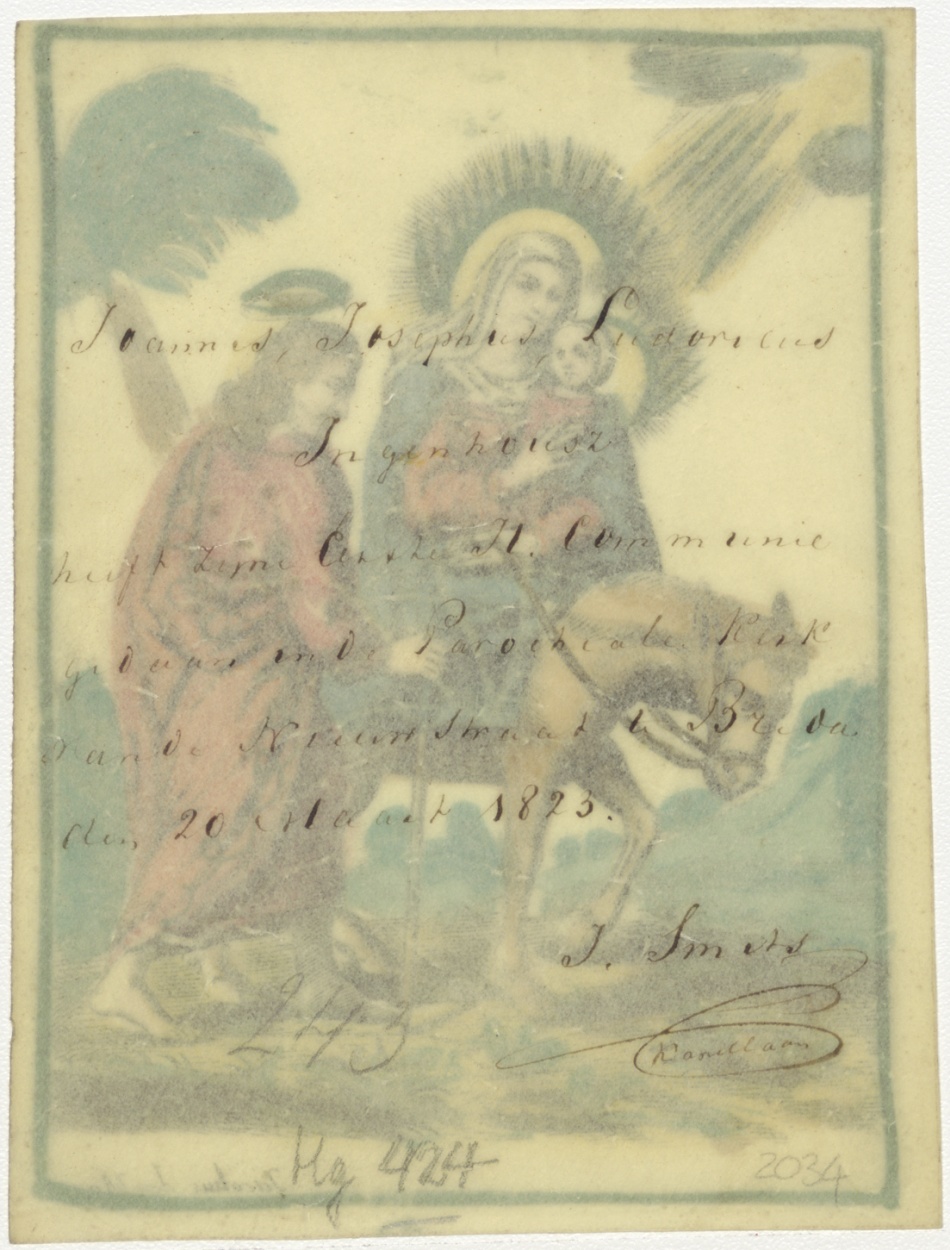 Joannes, Josephus, Ludovicus
Ingenhousz
heeft zyne Eerste H. Communie
gedaan in de Parochiale Kerk
van de Nieuwstraat te Breda
den 20 Maart 1823.
J. Smits
Kapellaan
243
Hg 424
2034